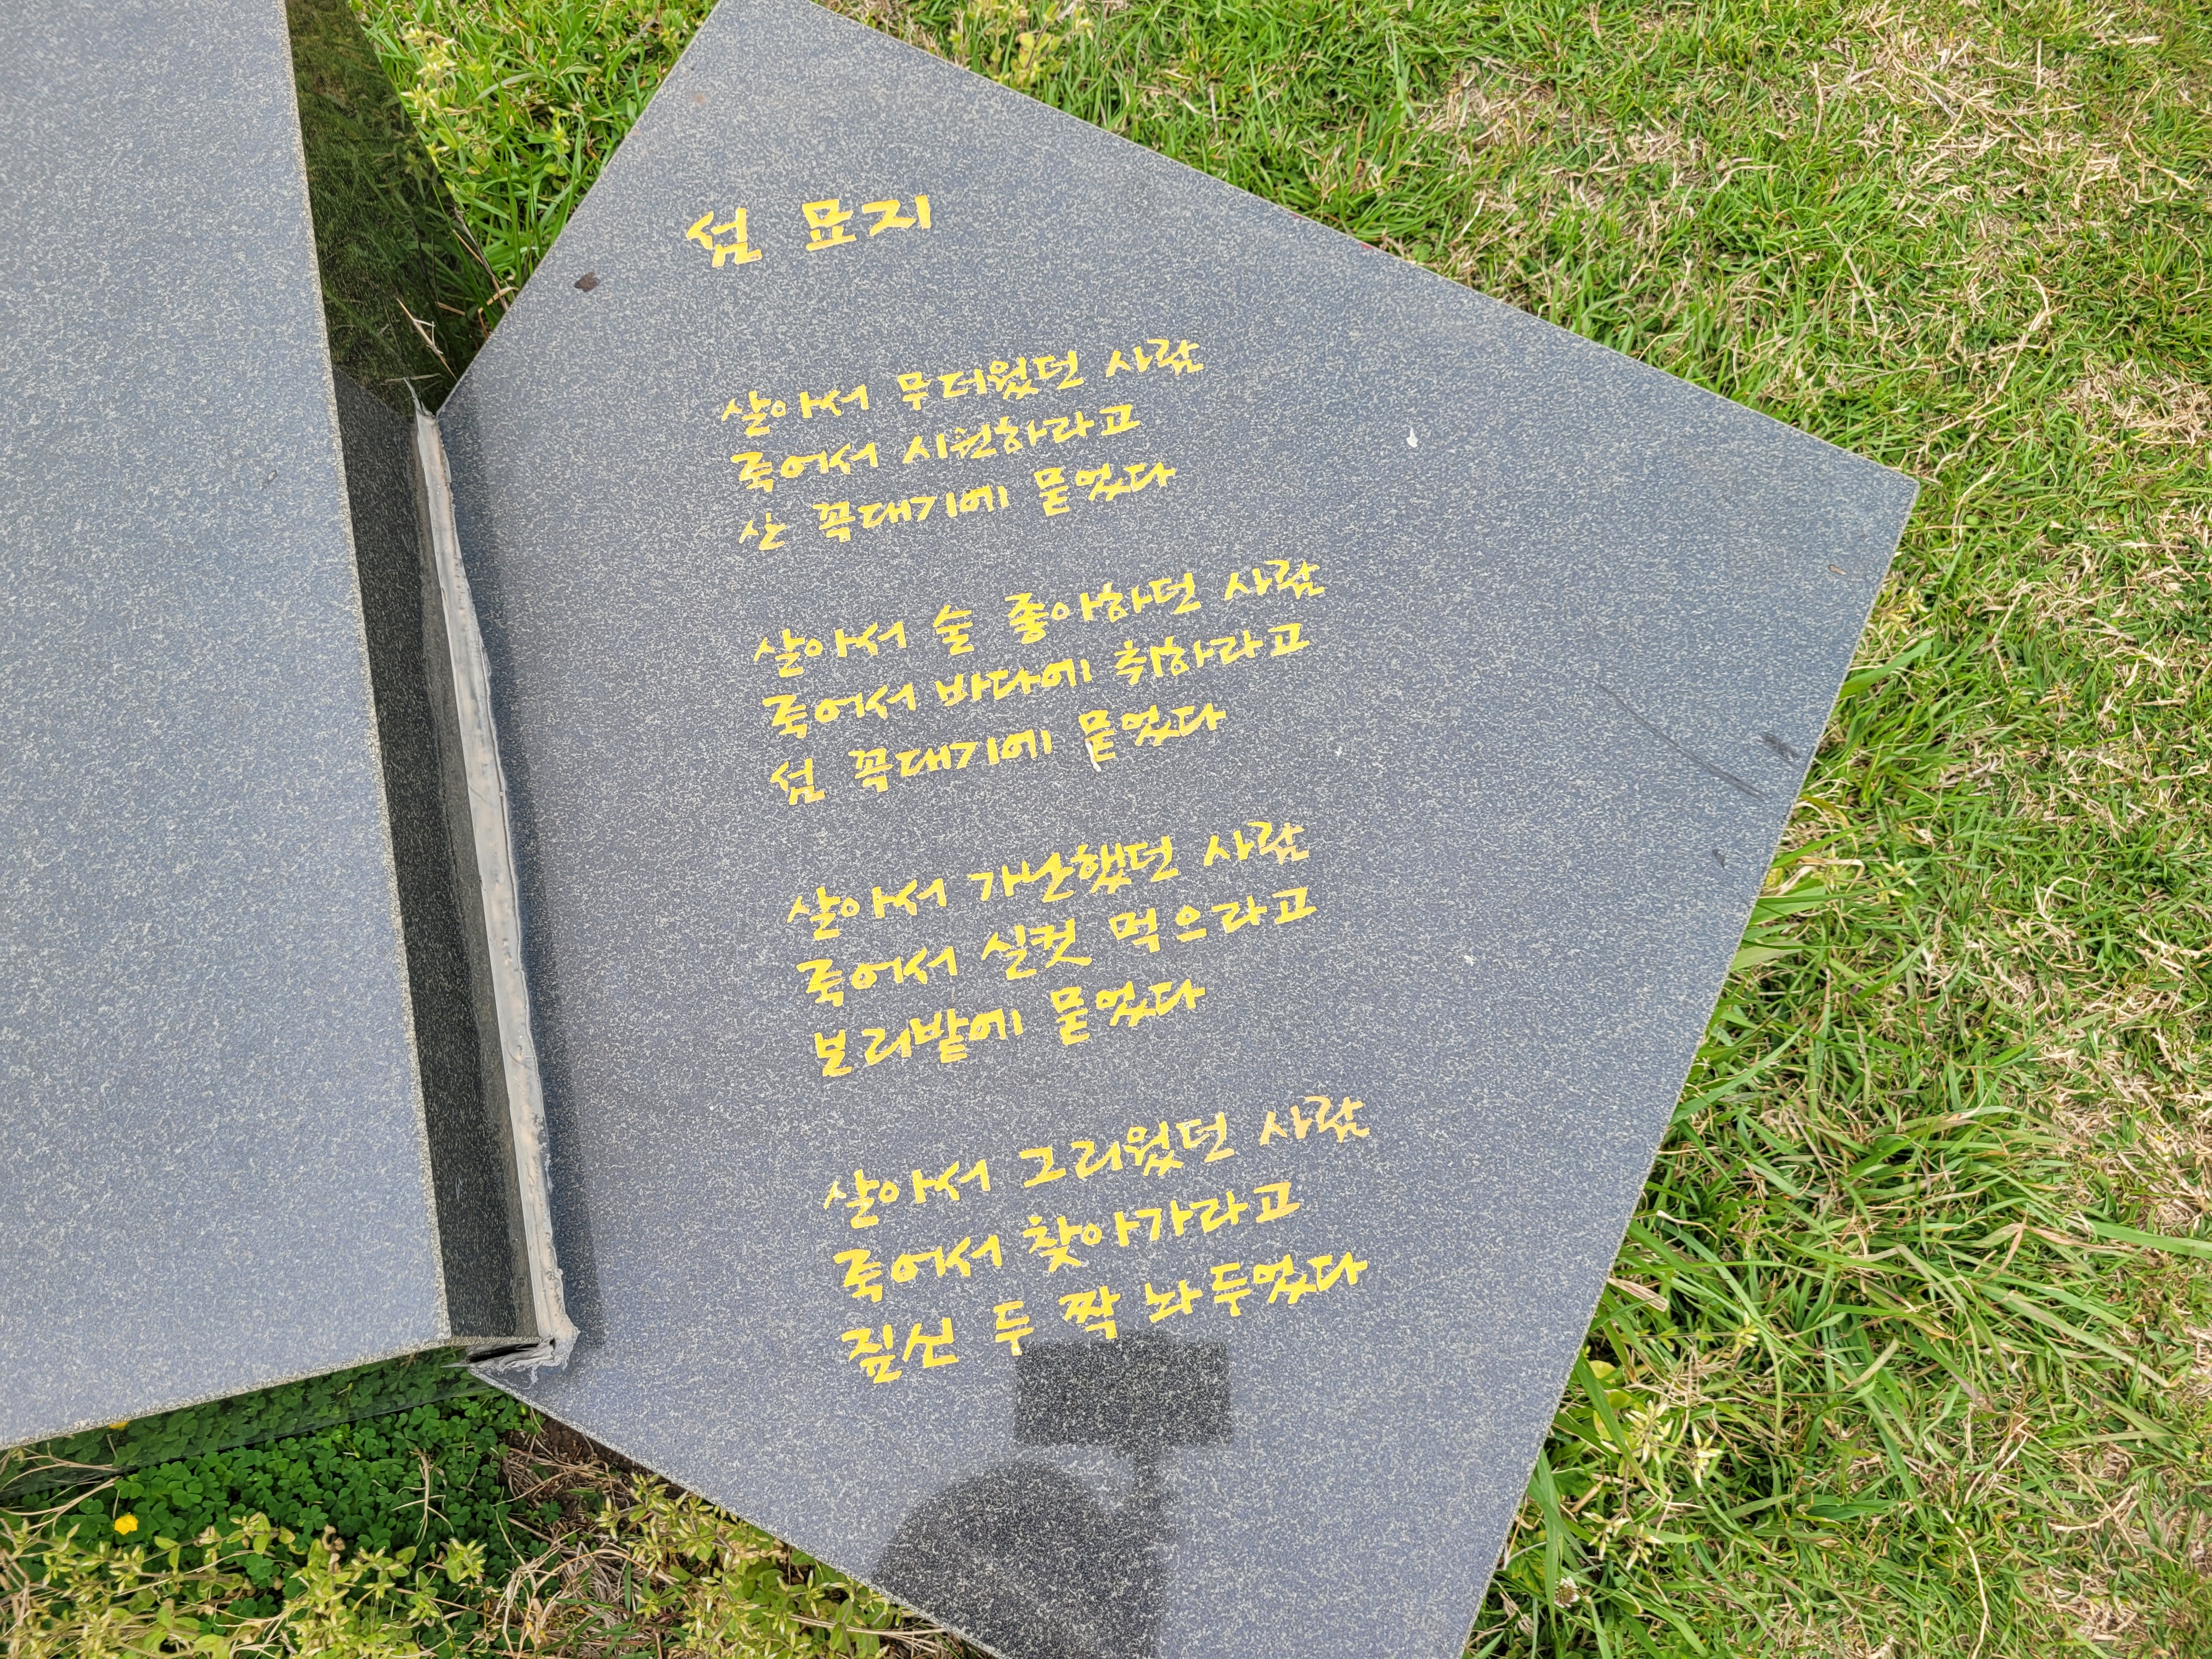 섬 묘지
살아서 무더웠던 사람
죽어서 시원하라고
산 꼭대기에 묻었다
살아서 술 좋아하던 사람
죽어서 바다에 취하라고
섬 꼭대기에 묻었다
살아서 가난했던 사람
죽어서 실컷 먹으라고
보리밭에 묻었다
살아서 그리웠던 사람
죽어서 찾아가라고
짚신 두 짝 놔 두었다